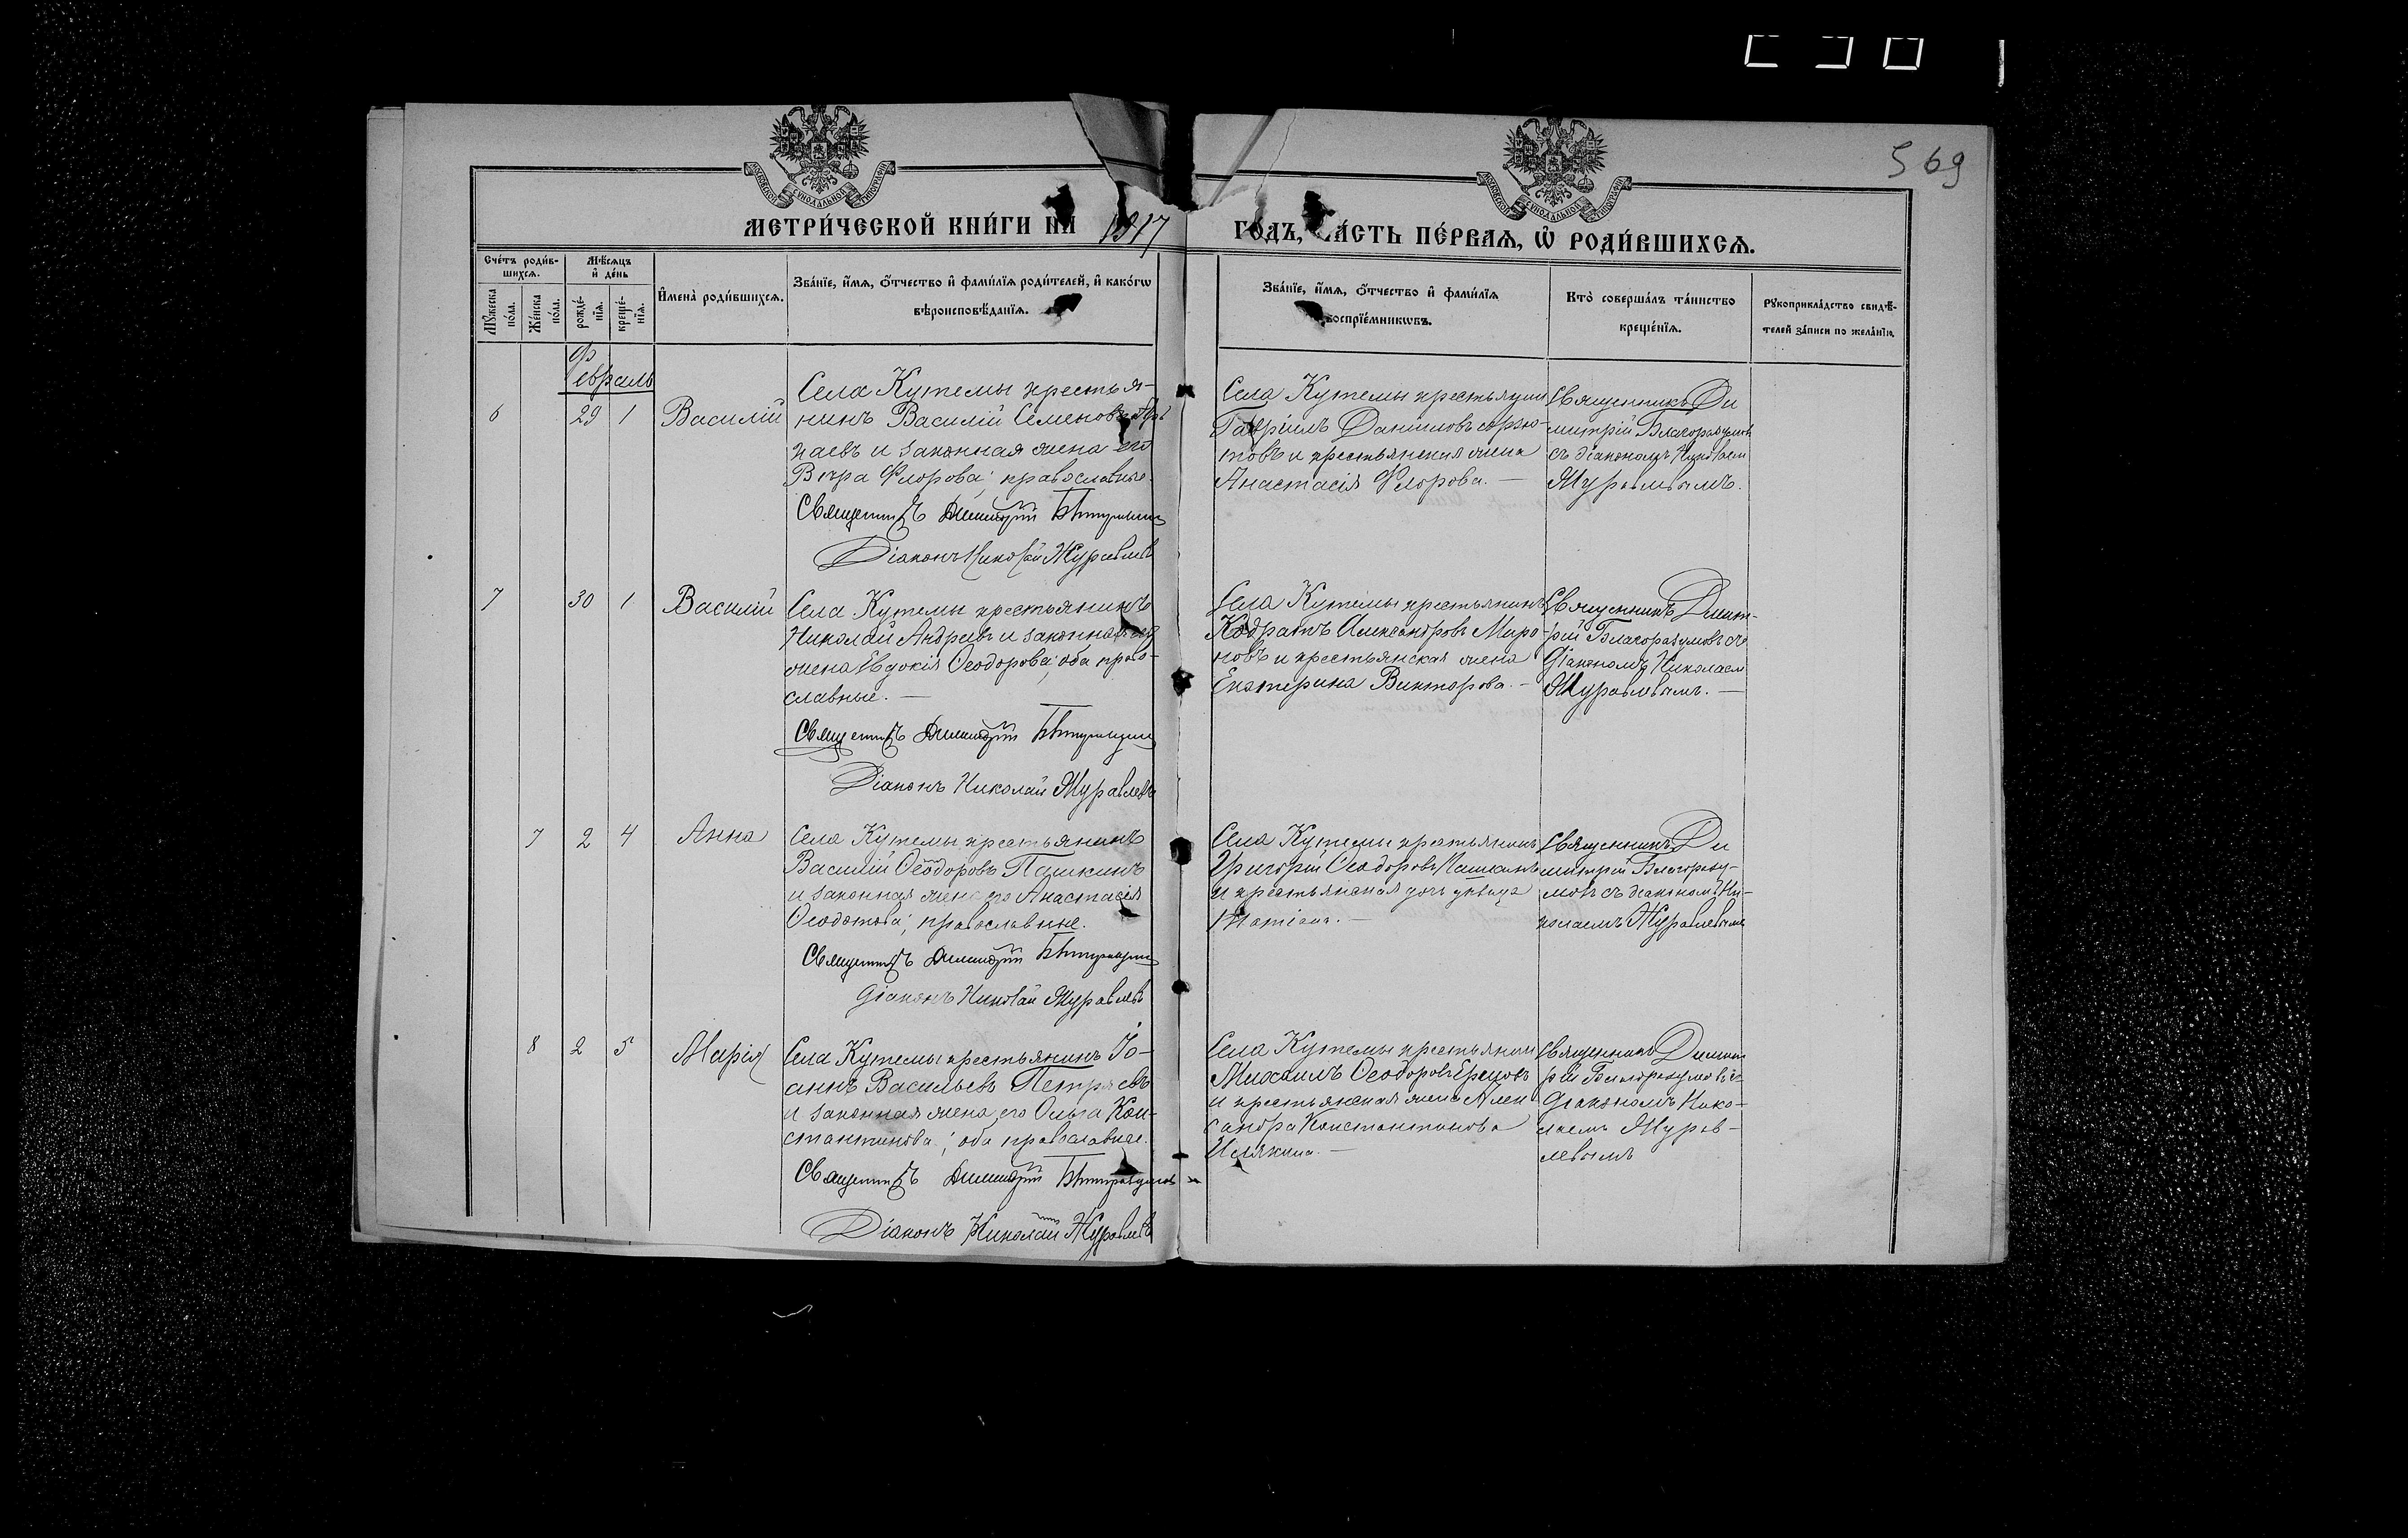 569
МЕТРИ́ЧЕСКОЙ КНИ́ГИ НА 1917 ГО́ДЪ, ЧА́СТЬ ПЕ́РВАЯ, Ѡ҆ РОДИ́ВШИХСЯ.
Сче́тъ роди́в-
шихсѧ.
Мꙋ́жеска
по́ла.
Же́нска
по́ла.
Мѣ́сѧцъ
и҆ де́нь
рожде́-
нїѧ.
креще́-
нїѧ.
И҆мена̀ роди́вшихсѧ.
Зва́нїе, и҆́мѧ, ѻ҆́тчество и҆ фами́лїѧ роди́телей, и҆ како́гѡ
вѣроисповѣ́данїѧ.
Зва́нїе, и҆́мѧ, ѻ҆́тчество и҆ фами́лїѧ
воспрїе́мникѡвъ.
Кто̀ соверша́лъ та́инство
креще́нїѧ.
Рꙋкоприкла́дство свидѣ́-
телей за́писи по жела́нїю.
Февраль
6 29 1 Василій
Села Кутемы крестья-
нинъ Василій Семеновъ
и законная жена его
Вѣра Флорова; православные.
Священникъ Димитрій
Діаконъ Николай Журавлевъ
Села Кутемы крестьянин
Гавріилъ Даниловъ
и крестьянская жена
Анастасія Флорова. —
Священникъ Ди
митрій Благоразумовъ
съ діакономъ Николаем
Журавлевымъ.
7 30 1 Василій
Села Кутемы крестьянинъ
Николай Андреевъ и законная его
жена Евдокія Ѳеодорова; оба право-
славные. —
Священникъ Димитрій
Діаконъ Николай Журавлевъ
Села Кутемы крестьянинъ
Кодратъ Александровъ Миро-
новъ и крестьянская жена
Екатерина Викторова. —
Священникъ Димит-
рій Благоразумовъ съ
діакономъ Николаем
Журавлевымъ. —
7 2 4 Анна
Села Кутемы крестьянинъ
Василій Ѳеодоровъ Пашкинъ
и законная жена его Анастасія
Ѳеодотова; православные.
Священникъ Димитрій
Діаконъ Николай Журавлевъ
Села Кутемы крестьянинъ
Григорій Ѳеодоровъ Пашкинъ
и крестьянская дочь дѣвица
Священникъ Ди
митрій Благоразу-
мовъ съ діакономъ Ни-
колаемъ Журавлевымъ
8 2 5 Марія
Села Кутемы крестьянинъ Іо-
аннъ Васильевъ Петряевъ
и законная жена его Ольга Кон-
стантинова; оба православные.
Священникъ Димитрій Благоразумовъ
Діаконъ Николай Журавлевъ
Села Кутемы крестьянин
Михаилъ Ѳеодоровъ
и крестьянская жена Алек
сандра Константинова
Илякина. —
Священникъ Димит
рій Благоразумовъ съ
діакономъ Нико-
лаемъ Журав-
левымъ